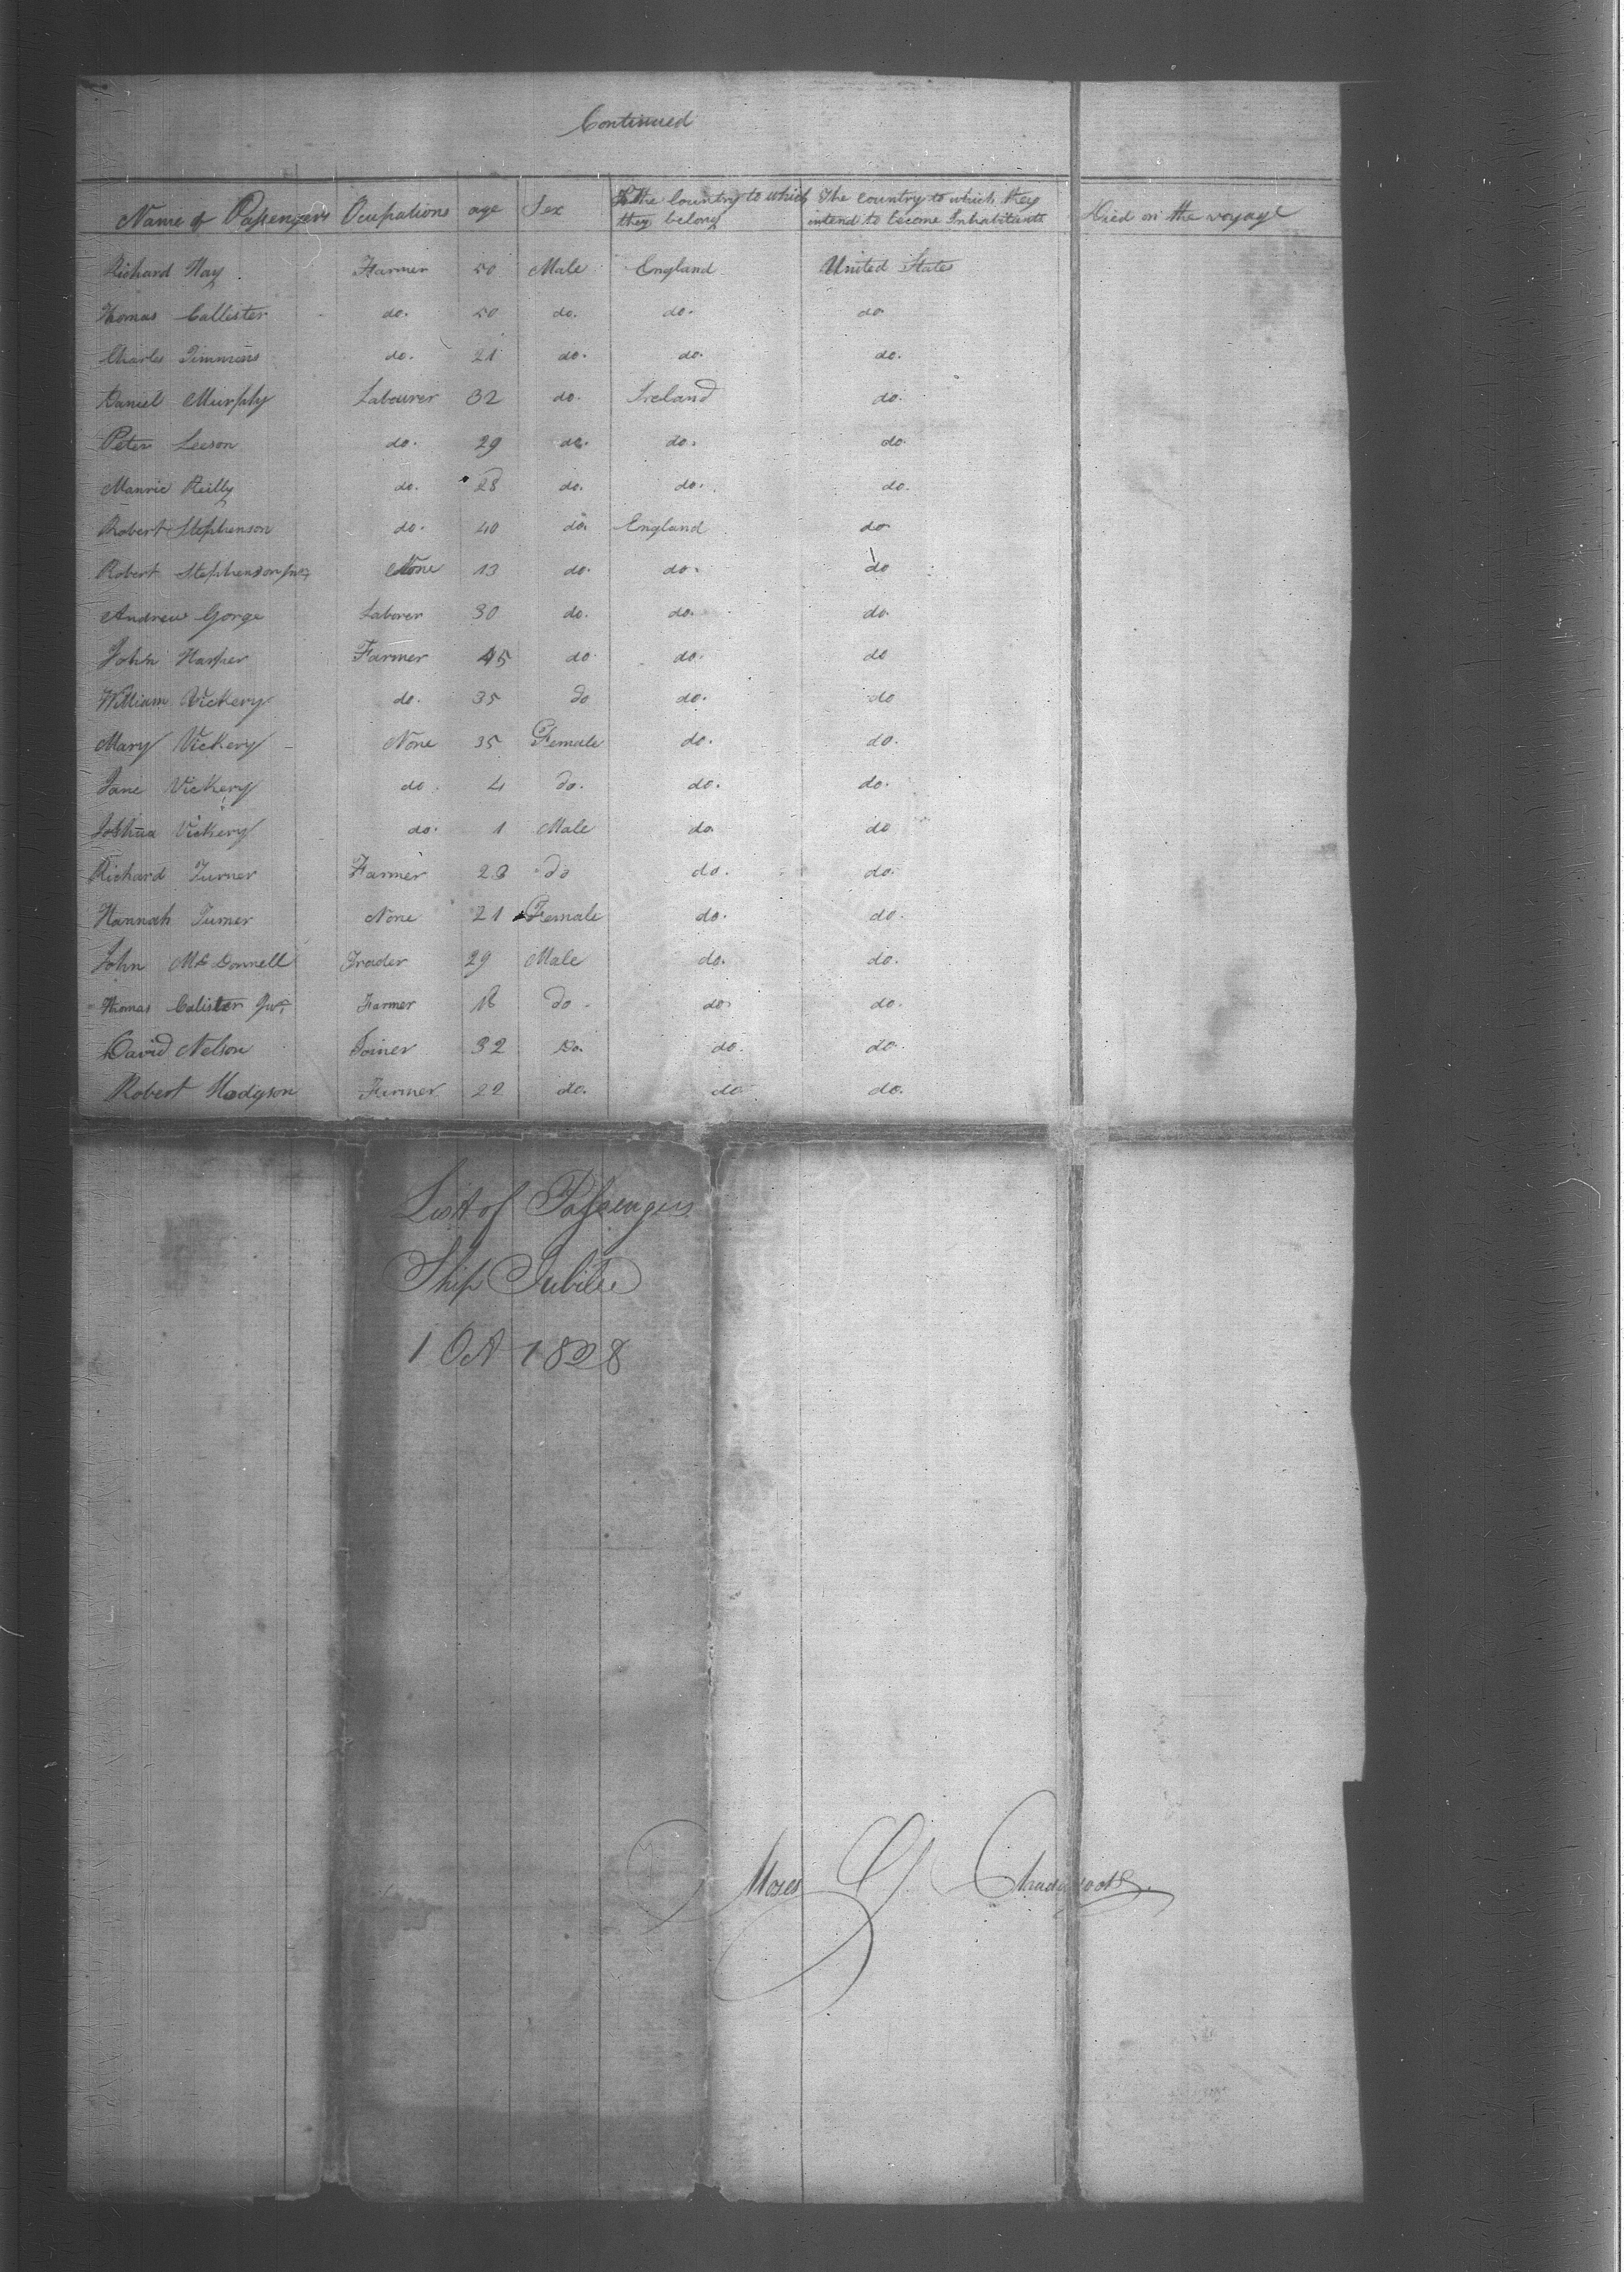 Continued
Name of Passengers Ocupations age Sex Of the Country to which they belong The country to which they intend to become Inhabitants Died on the voyage
Richard Hay Farmer 50 Male England United States
Thomas Callister do. 50 do. do. do
Charles Timmons do. 21 do. do. do.
Daniel Murphy Labourer 32 do. Ireland do.
Peter Leeson do. 29 do. do. do
Reilly do. 28 do. do. do.
Robert Stephenson do. 40 do. England do
Robert Stephenson None 13 do. do. do
Andrew Gorge Laborer 30 do. do. do.
John Harper Farmer 45 do do. do
William Vickery do. 35 do do. do
Mary Vickery None 35 Female do. do.
Jane Vickery do 4 do. do. do.
Joshua Vickery do. 1 Male do. do
Richard Turner Farmer 28 do do. do.
Hannah Turner None 21 Female do. do.
John McDonnell Trader 29 Male do. do.
Thomas Calister Junr Farmer 18 do do. do.
David Nelson Joiner 32 Do. do. do.
Robert Hodgson Farmer 22 do. do do.
List of Passengers
Ship Jubilee
1 Oct 1828
Moses